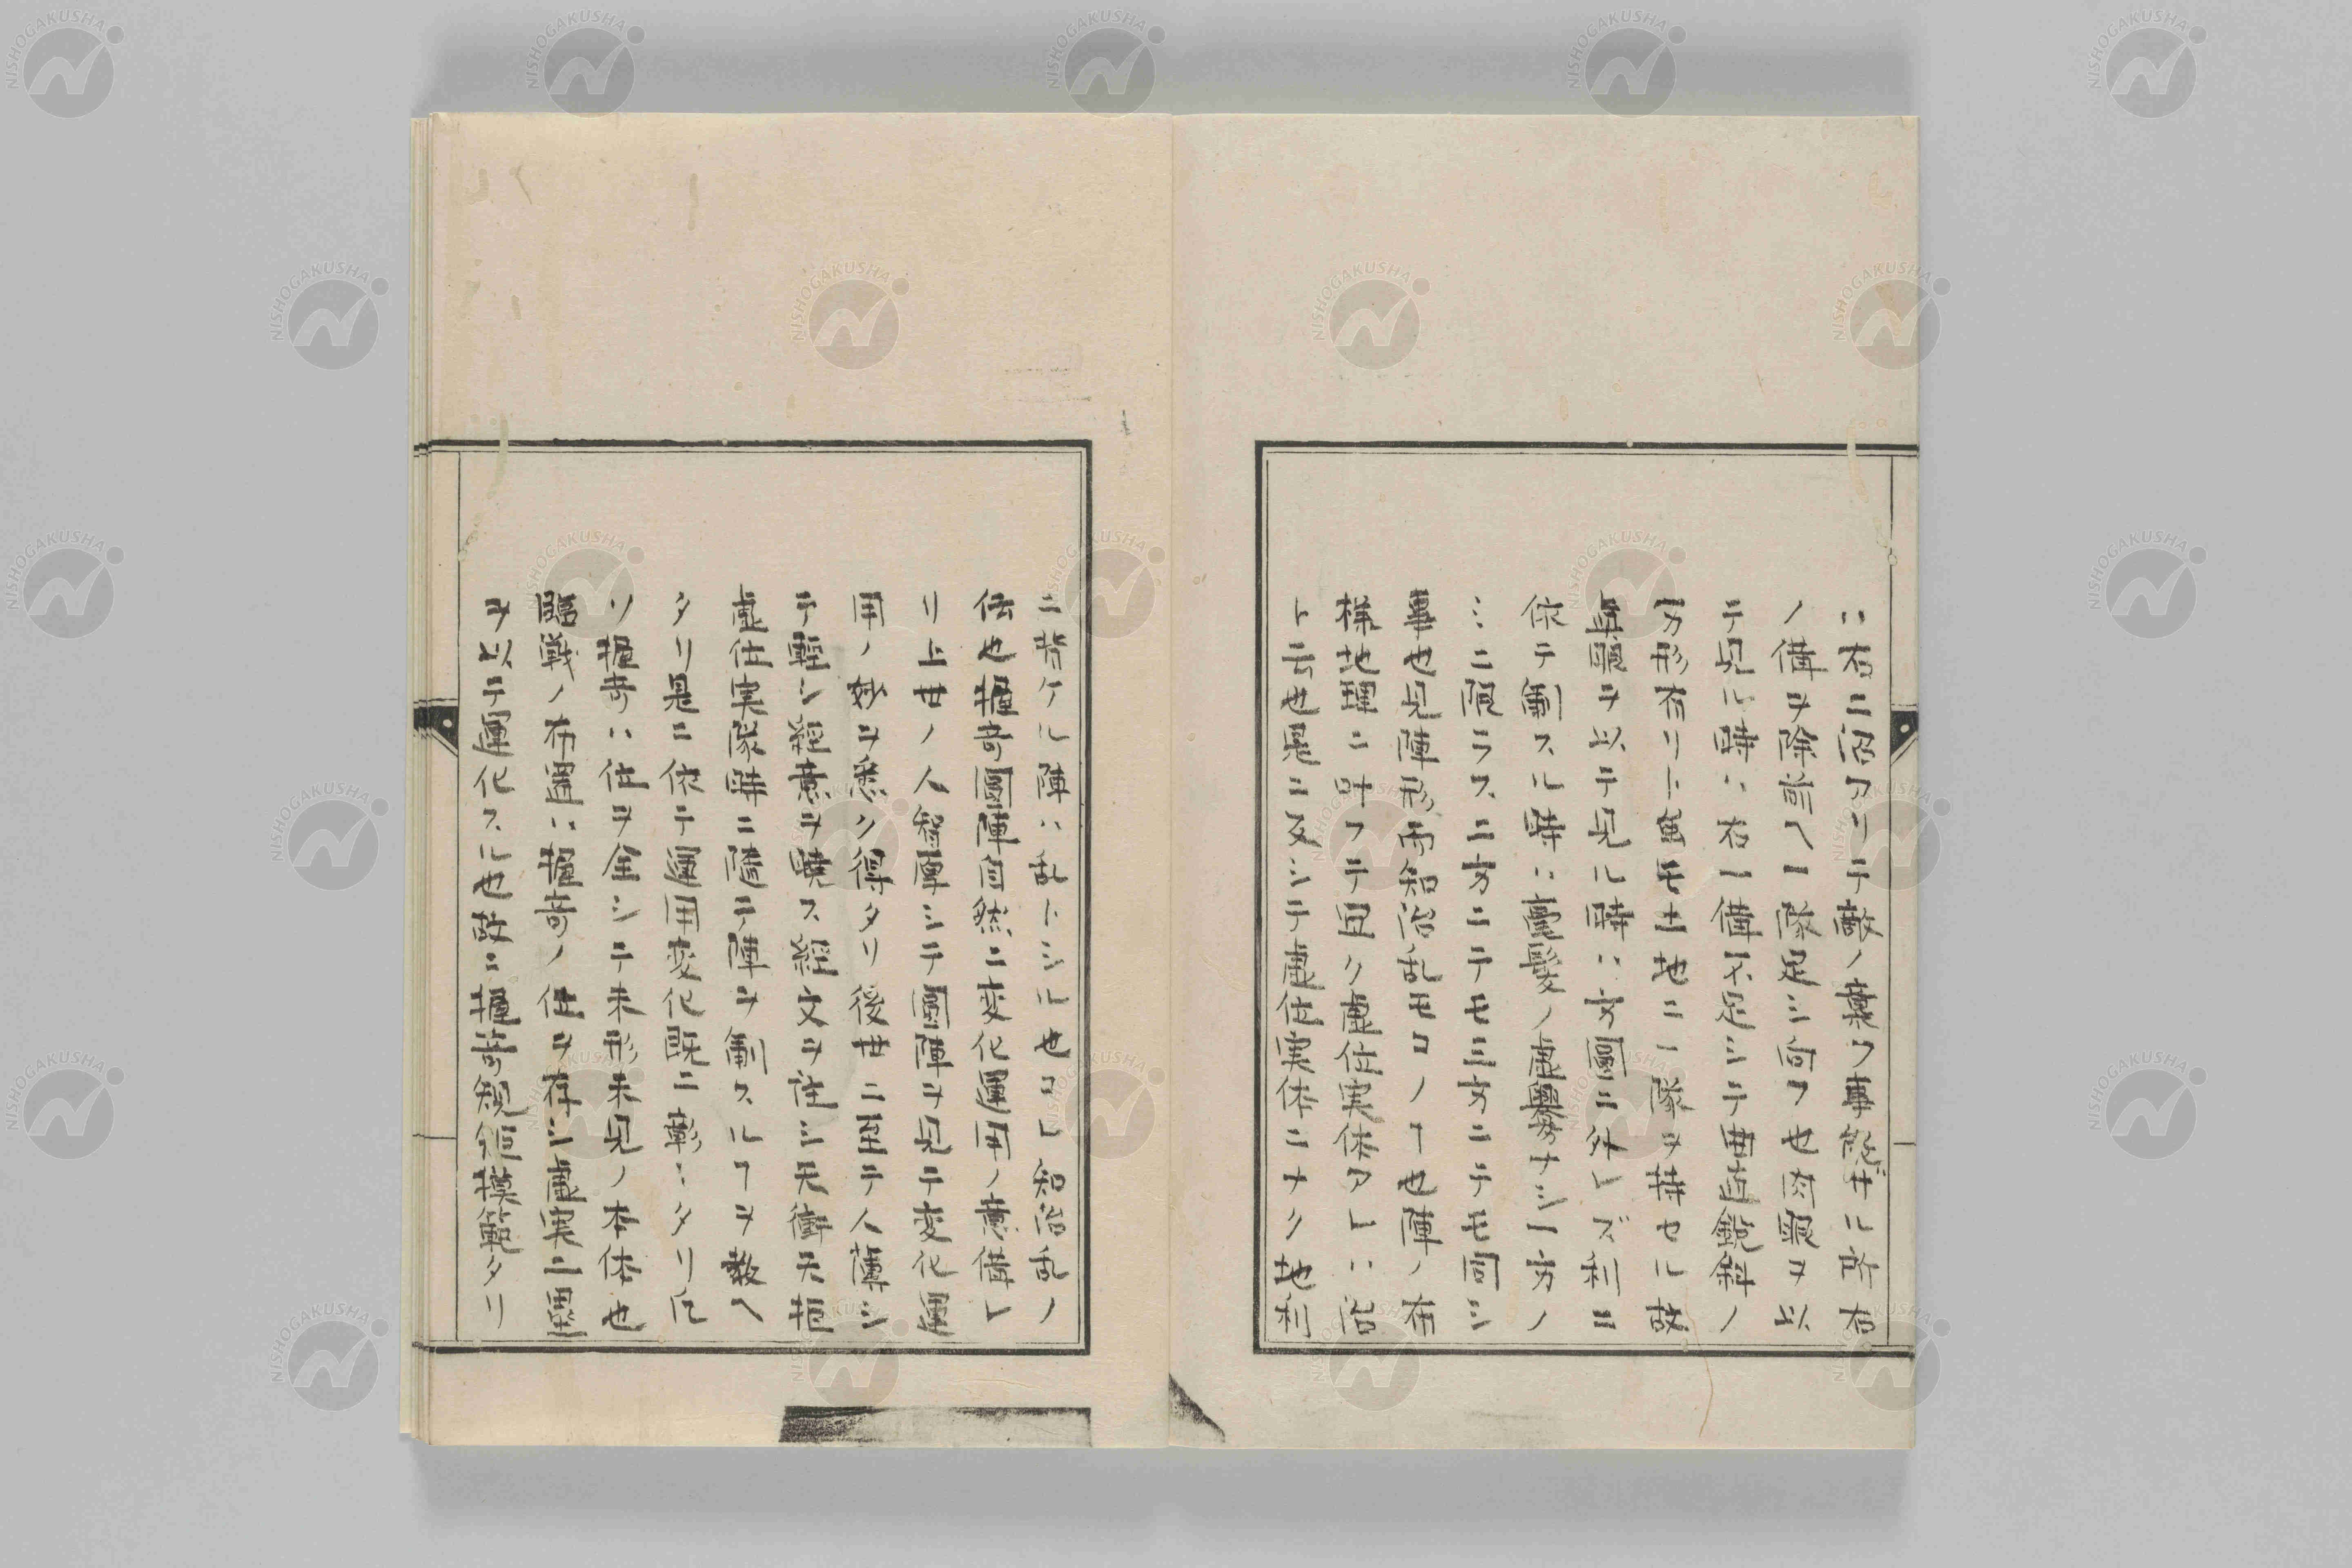 ハ右ニ沼アリテ敵ノ襲フ事能ザル所右
ノ備ヲ除前ヘ一隊足シ向フ也肉眼ヲ以
テ見ル時ハ右一備不足シテ曲直鋭斜ノ
方形有リト雖モ土地ニ一隊ヲ持セル故
真眼ヲ以テ見ル時ハ方圓ニ外レズ利ニ
依テ制スル時ハ毫髪ノ虚隙ナシ一方ノ
ミニ限ラス二方ニテモ三方ニテモ同シ
事也見陣形而知治乱モコノヿ也陣ノ布
様地理ニ叶フテ且ク虚位実体アレハ治
ト云也是ニ反シテ虚位実体ニナク地利
ニ背ケル陣ハ乱トシル也コレ知治乱ノ
伝也握奇圓陣自然ニ変化運用ノ意備レ
リ上世ノ人智厚シテ圓陣ヲ見テ変化運
用ノ妙ヲ悉ク得タリ後世ニ至テ人薄シ
テ軽シ経意ヲ暁ス経文ヲ註シ天衝天拒
虚位実隊時ニ隨テ陣ヲ制スルヿヲ教ヘ
タリ是ニ依テ運用変化既ニ彰ハタリ凡
ソ握奇ハ位ヲ全シテ未形未見ノ本体也
臨戦ノ布置ハ握奇ノ位ヲ存シ虚実ニ
ヲ以テ運化スル也故ニ握奇規矩模範タリ